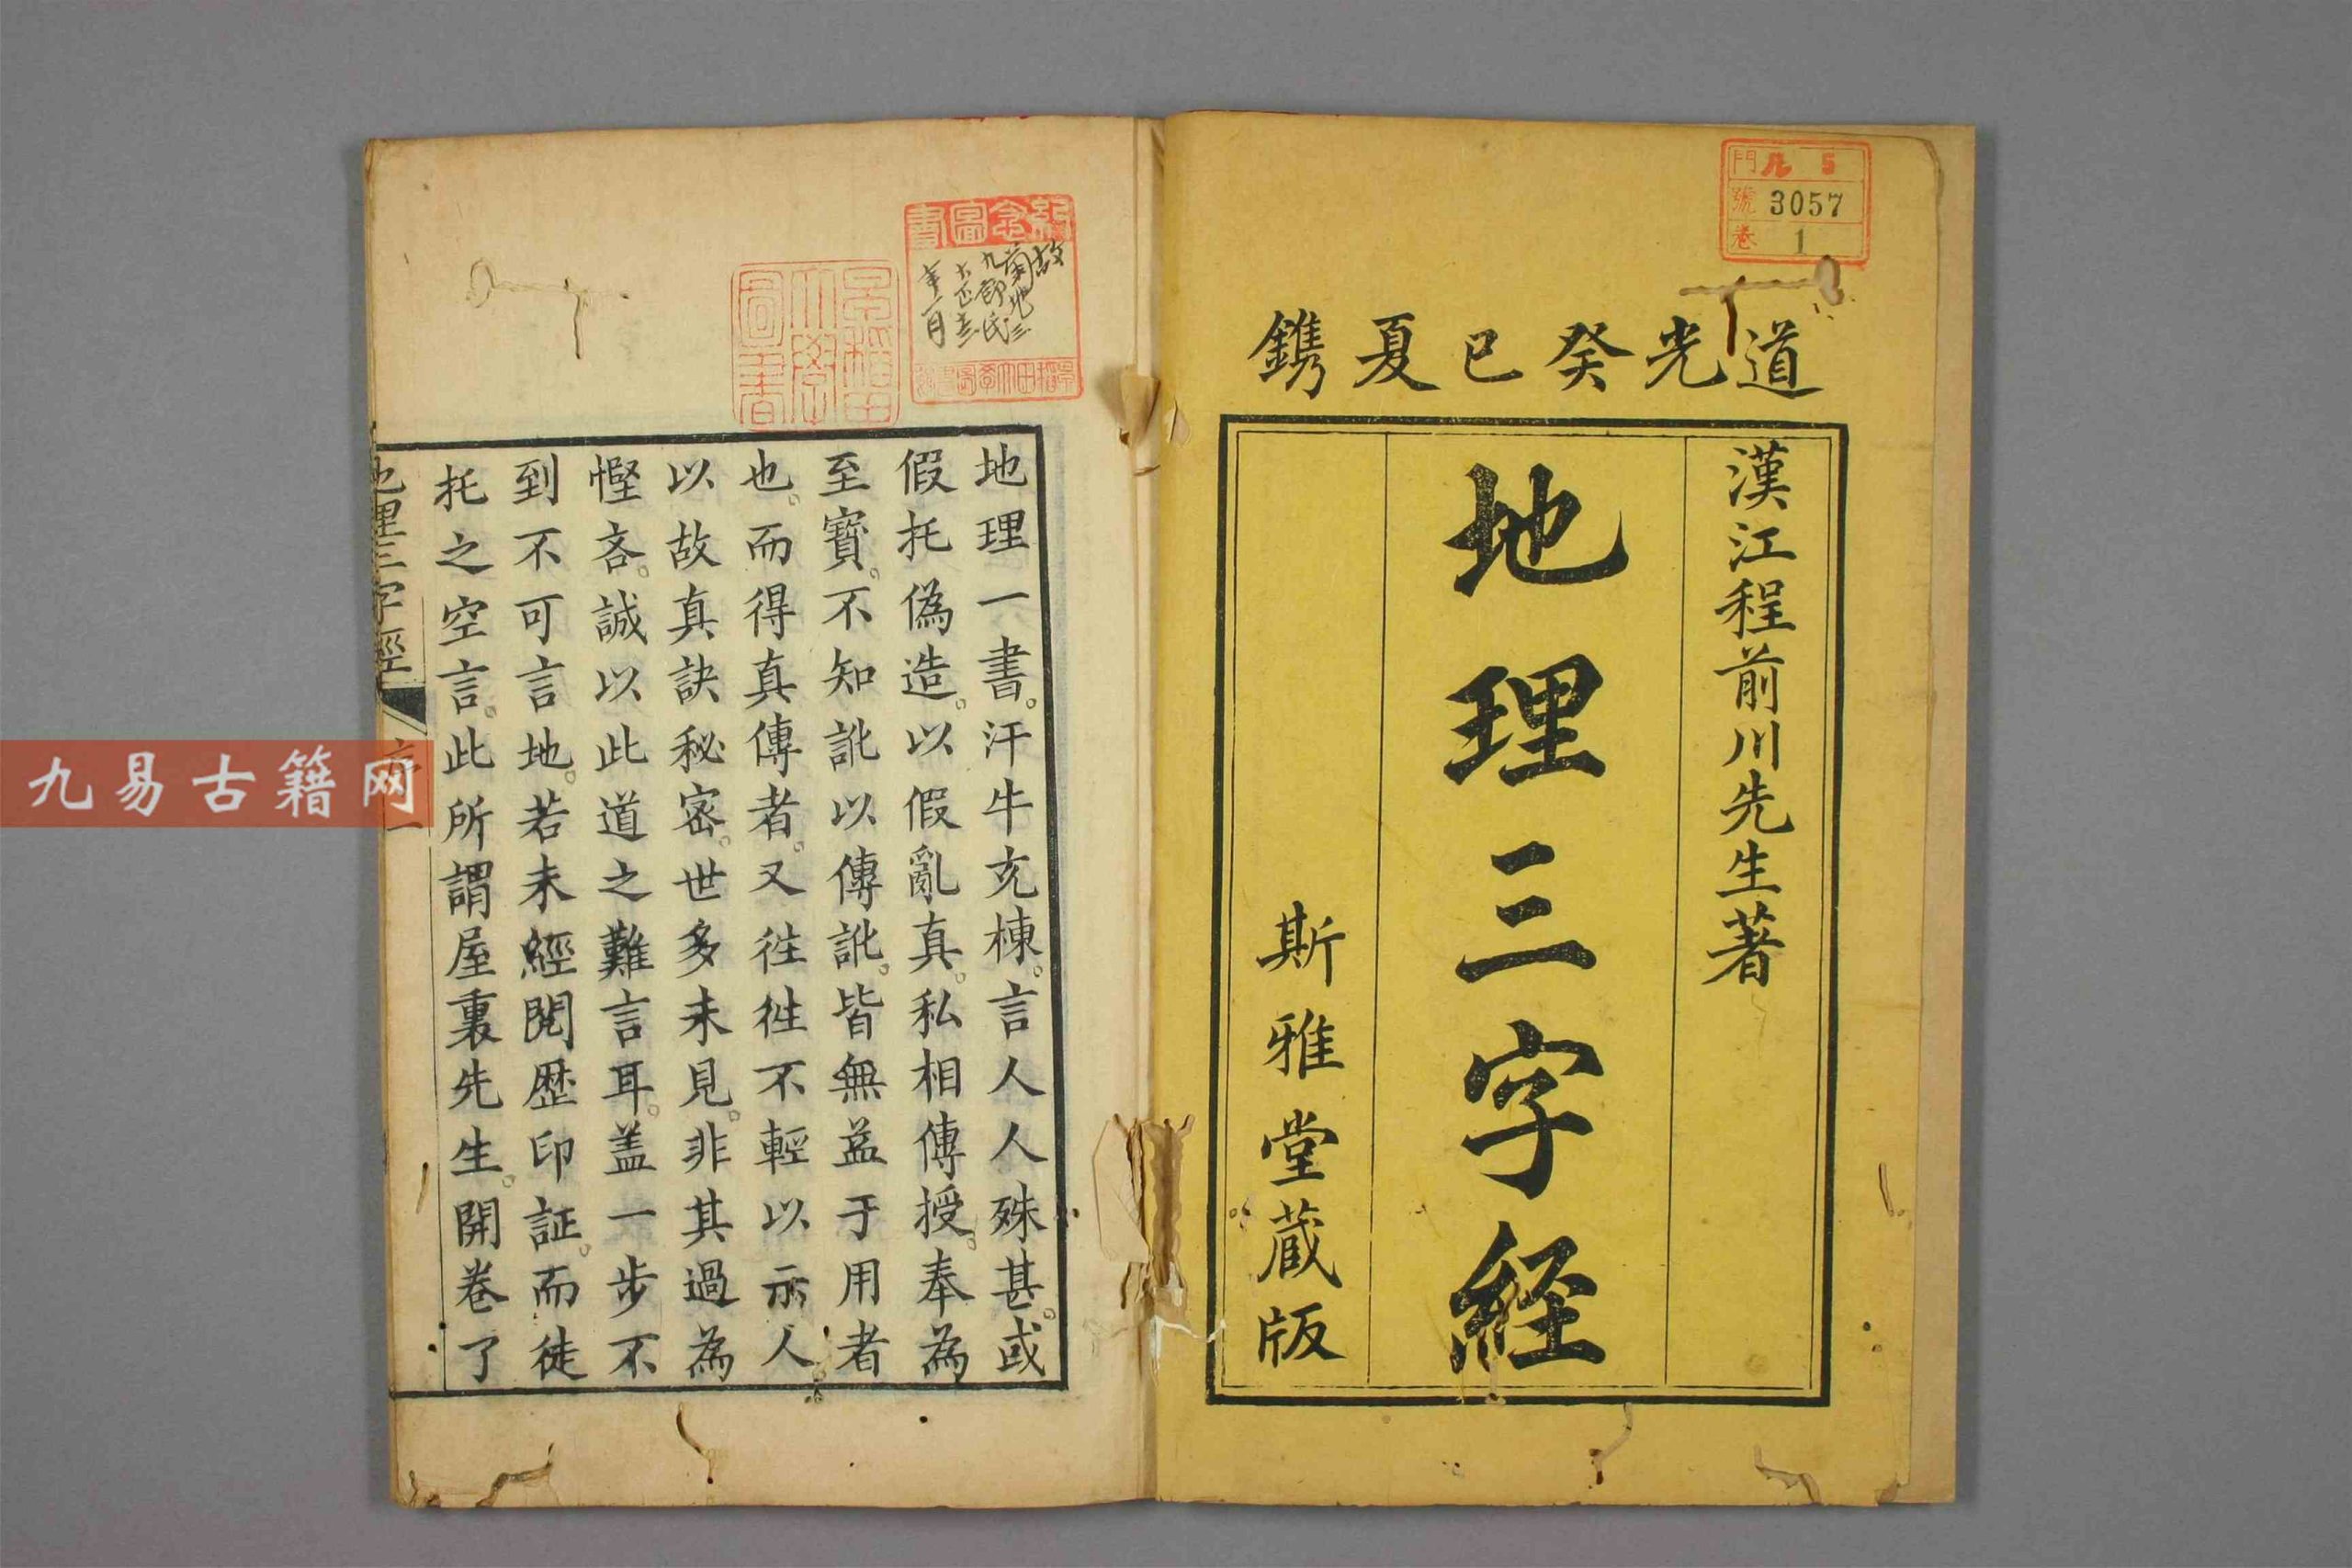 道光癸巳夏鐫
漢江程前川先生著
地理三字經
斯雅堂蔵版
門 ル 5
號 3057
卷 1
地理一書。汗牛充棟。言人人殊甚。或
假托偽造。以假亂真。私相傳授。奉為
至寳。不知訛以傳訛。皆無益于用者
也。而得真傳者。又徃徃不輕以示人
以故真訣秘密。世多未見。非其過為
慳吝。誠以此道之難言耳。盖一步不
到不可言地。若未經閱歷印証。而徒
托之空言。此所謂屋裏先生。開卷了
地理三字經
序
一
紀念圖書
故
菊池三
九郎氏
早稲田大學圖書
九易古籍网